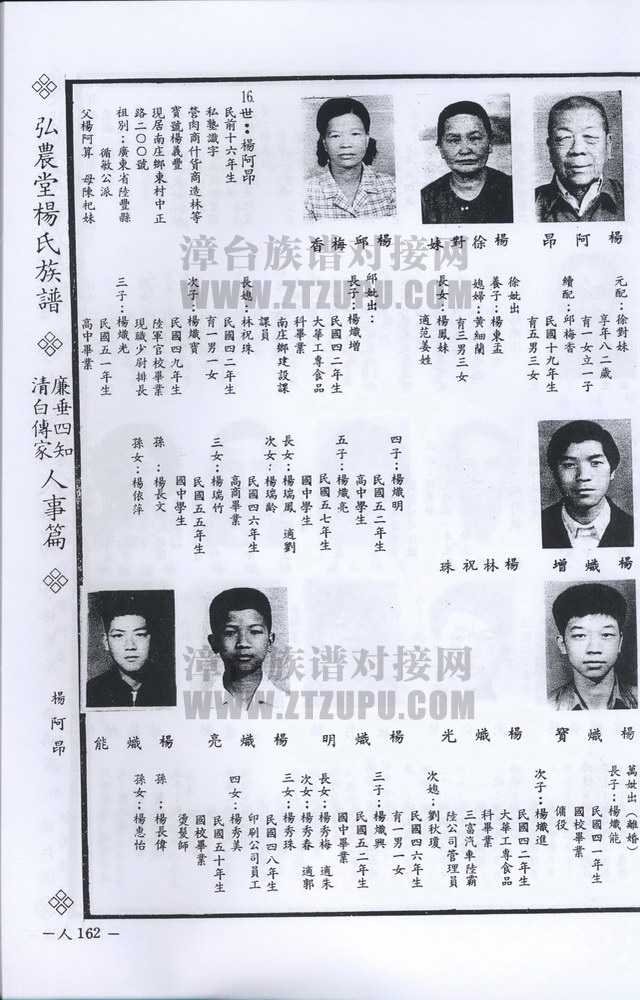 弘農堂楊氏族譜
廉垂四知
清白傳家
人事篇
楊阿昂
—人162—
楊阿昂
楊徐對妹
楊邱梅香
16.世：楊阿昂
民前十六年生
私塾識字
營肉商什貨商造林等
寶號楊義豐
現居南庄鄉東村中正
路二〇〇號
祖別：廣東省陸豐縣
循敏公派
父楊阿算 母陳杞妹
元配：徐對妹
享年八二歲
育一女立一子
續配：邱梅香
民國十九年生
育五男三女
徐妣出
養子：楊東孟
媳婦：黃細蘭
育三男三女
長女：楊鳳妹
適范姜姓
邱妣出：
長子：楊熾增
民國四二年生
大華工專食品
科畢業
南庄鄉建設課
課員
長媳：林祝珠
民國四二年生
育一男一女
次子：楊熾寶
民國四九年生
陸軍官校畢業
現職少尉排長
三子：楊熾光
民國五一年生
高中畢業
四子：楊熾明
民國五二年生
高中學生
五子：楊熾亮
民國五七年生
國中學生
長女：楊瑞鳳 適劉
次女：楊瑞齡
民國四六年生
高商畢業
三女：楊瑞竹
民國五五年生
國中學生
孫：楊長文
孫女：楊依萍
楊熾增
楊林祝珠
楊熾寶
楊熾光
楊熾明
楊熾亮
楊熾能
萬妣出（離婚）
長子：楊熾能
民國四一年生
國校畢業
傭役
次子：楊熾進
民國四二年生
大華工專食品
科畢業
三富汽車陸霸
陸公司管理員
次媳：劉秋瓊
民國四六年生
育一男一女
三子：楊熾興
民國五二年生
國中畢業
長女：楊秀梅 適朱
次女：楊秀春 適郭
三女：楊秀珠
民國四八年生
印刷公司員工
四女：楊秀美
民國五十年生
國校畢業
燙髮師
孫：楊長偉
孫女：楊惠怡
漳台族谱对接网
WWW.ZTZUPU.COM
漳台族谱对接网
WWW.ZTZUPU.COM